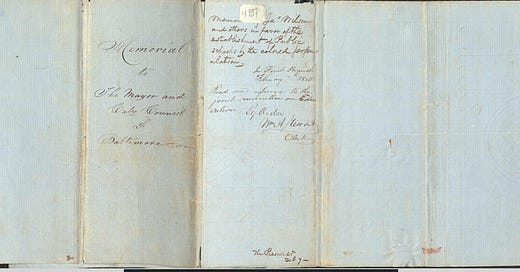 Memorial
to
The Mayor and
City Council
of
Baltimore
487
Memorial of Jas Wilson
and others in favor of the
establishment of Public
schools by the colored popu
lation
In First Branch
February 7th
Read and referred to the
joint committee on Edu
cation
By Order
Clerk
Feb 7